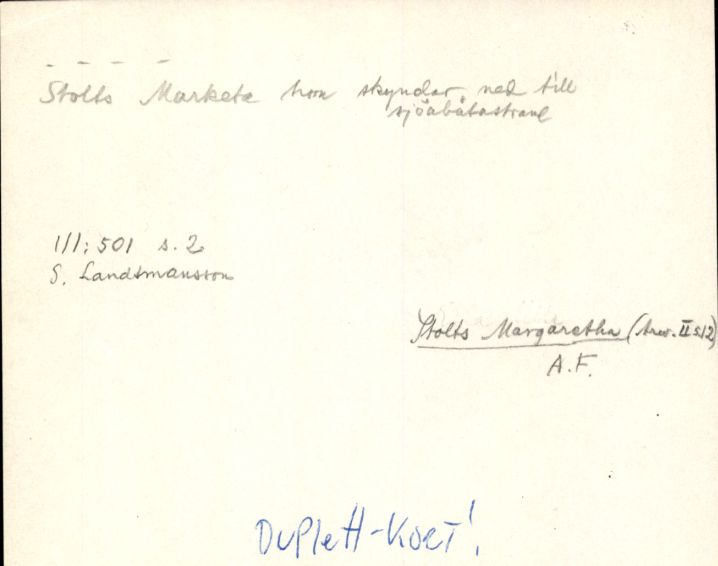 - - - -
Stolts Marketa hon skyndar ned till
sjöabåtastrand
111: 501 s. 2
S. Landtmansson
Stolts Margaretha (Arw. II s12)
A.F.
DUPlett-Kort!